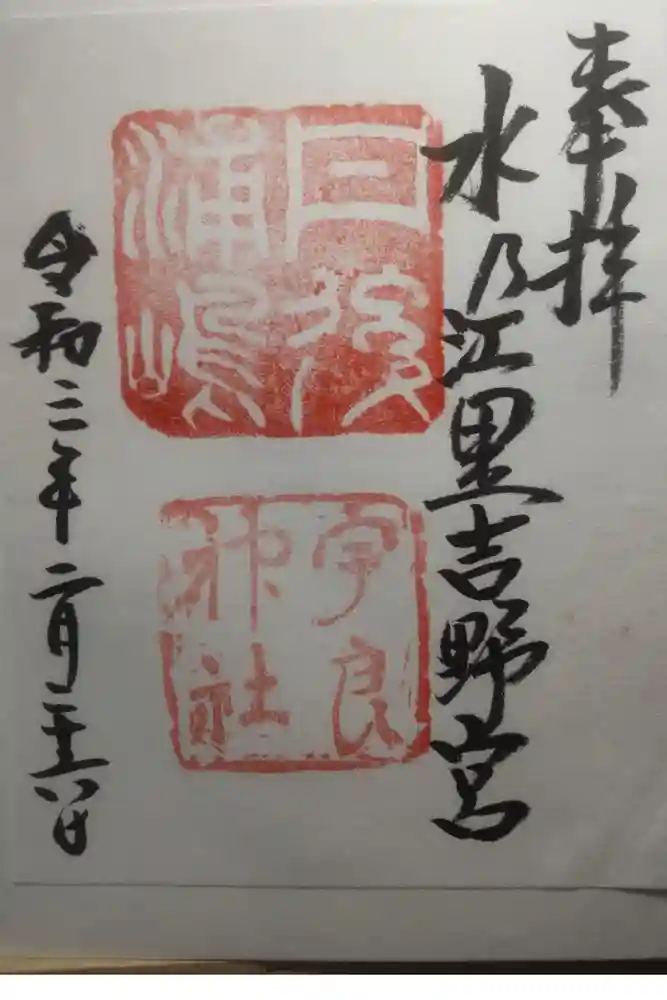 奉拝
水乃江里吉野宮
丹後
浦嶋
宇良
神社
令和三年二月二十六日